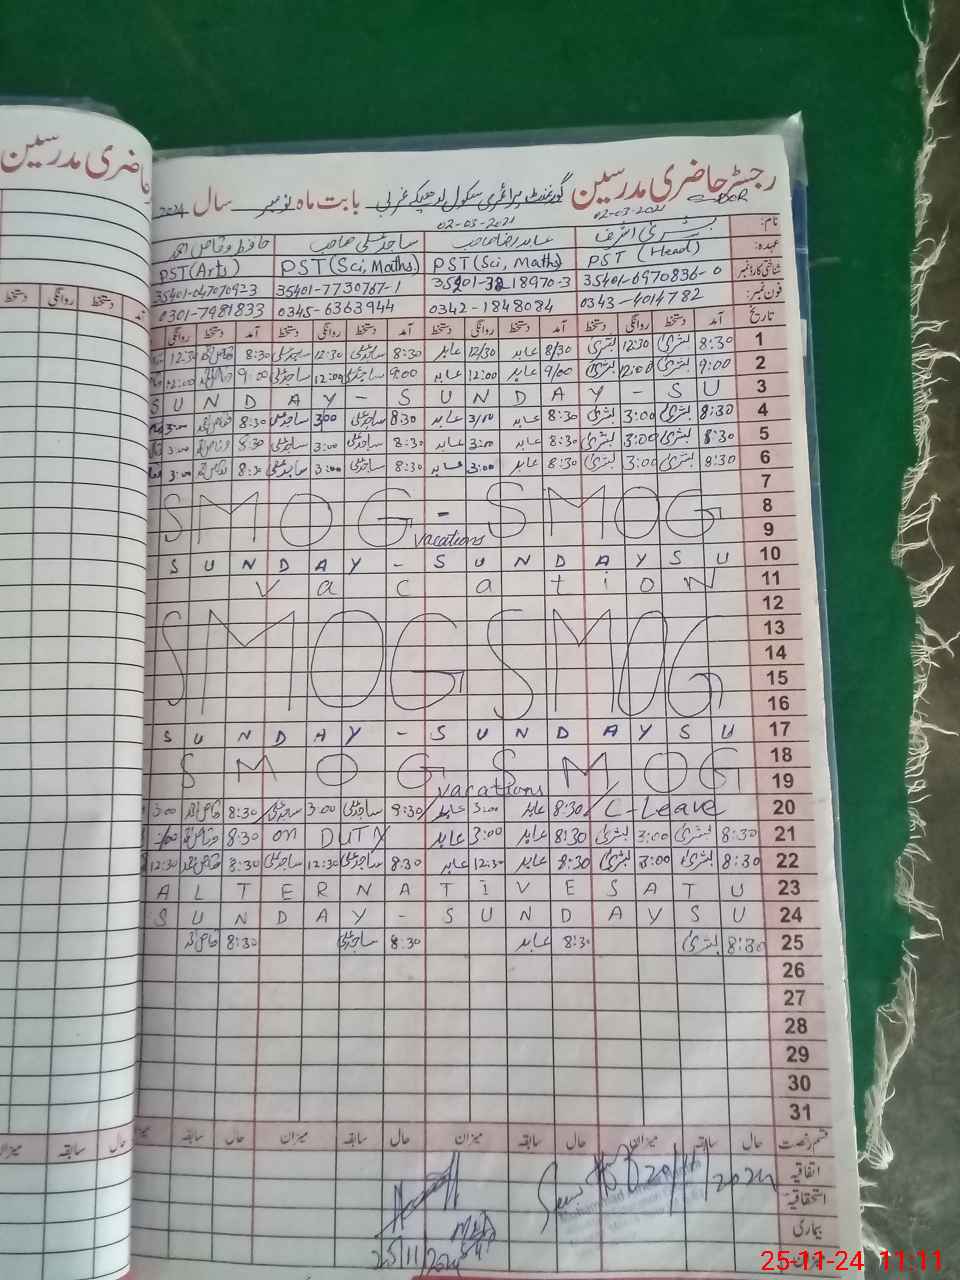 حاضری مدرسین
رجسٹر حاضری مدرسین گورنمنٹ پرائمری سکول لدھیکے غربی بابت ماہ نومبر سال 2024
02-03-2021 02-03-2021
نام: بشریٰ اشرف عابد رضا صاحب ساجد علی صاحب حافظ وقاص احمد
عہدہ: PST (Head) PST (Sci, Maths) PST (Sci, Maths) PST (Arts)
شناختی کارڈ نمبر 35401-6970836-0 35201-3218970-3 35401-7730767-1 35401-0470709-3
فون نمبر: 0343-4014782 0342-1848084 0345-6363944 0301-7981833
تاریخ آمد دستخط روانگی دستخط آمد دستخط روانگی دستخط آمد دستخط روانگی دستخط آمد دستخط روانگی
1 8:30 بشریٰ 12:30 بشریٰ 8/30 عابد 12/30 عابد 8:30 ساجد علی 12:30 ساجد علی 8:30 12:30
2 9:00 بشریٰ 12:00 بشریٰ 9/00 عابد 12:00 عابد 9:00 ساجد علی 12:00 ساجد علی 9:00 12:00
3 S U N D A Y - S U N D A Y - S U
4 8:30 بشریٰ 3:00 بشریٰ 8:30 عابد 3/00 عابد 8:30 ساجد علی 3:00 ساجد علی 8:30 3:00
5 8:30 بشریٰ 3:00 بشریٰ 8:30 عابد 3:00 عابد 8:30 ساجد علی 3:00 ساجد علی 8:30 3:00
6 8:30 بشریٰ 3:00 بشریٰ 8:30 عابد 3:00 عابد 8:30 ساجد علی 3:00 ساجد علی 8:30 3:00
7
8 SMOG - SMOG
9 vacations
10 S U N D A Y - S U N D A Y S U
11 V a c a t i o N
12
13
14 SMOG SMOG
15
16
17 S U N D A Y - S U N D A Y S U
18 S M O G S M O G
19 vacations
20 C-Leave 8:30 عابد 3:00 عابد 8:30 ساجد علی 3:00 ساجد علی 8:30 3:00
21 8:30 بشریٰ 3:00 بشریٰ 8:30 عابد 3:00 عابد on DUTY 8:30
22 8:30 بشریٰ 3:00 بشریٰ 8:30 عابد 12:30 عابد 8:30 ساجد علی 12:30 ساجد علی 8:30 12:30
23 A L T E R N A T I V E S A T U
24 S U N D A Y - S U N D A Y S U
25 8:30 بشریٰ 8:30 عابد 8:30 ساجد علی 8:30
26
27
28
29
30
31
قسم رخصت حال سابقہ میزان حال سابقہ میزان حال سابقہ میزان حال سابقہ
اتفاقیہ
استحقاقیہ
بیماری
25/11/2024
25-11-24 11:11